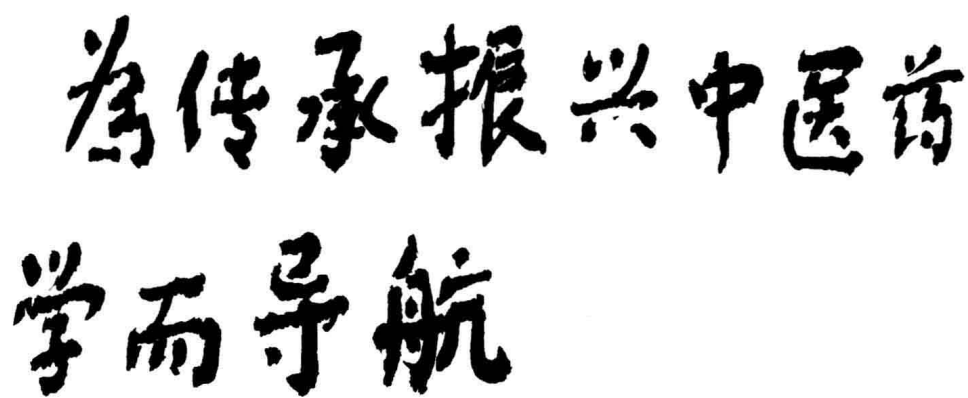 为传承振兴中医药
学而导航